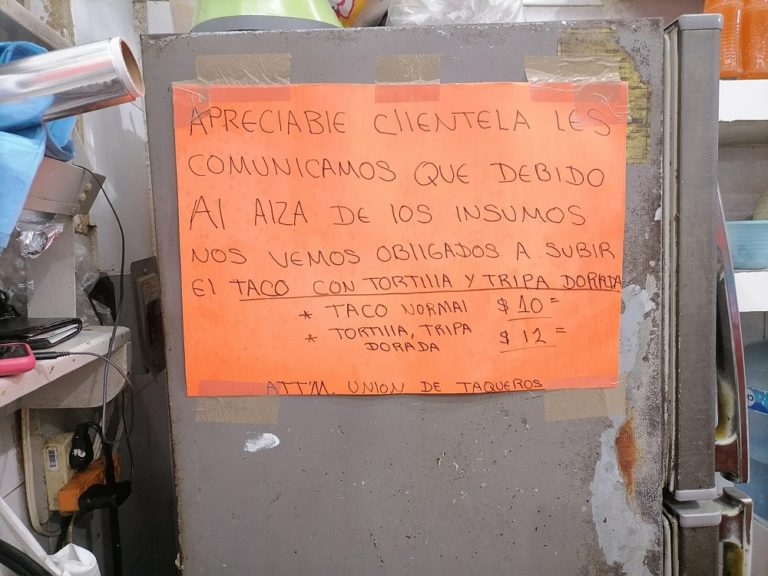 APRECIABlE ClIENTELA LES
COMUNICAMOS QUE DEBIDO
Al AlZA DE lOS INSUMOS
NOS VEMOS OBlIGADOS A SUBIR
El TACO CON TORTIllA Y TRIPA DORADA
* TACO NORMAl $10=
* TORTIllA, TRIPA
DORADA $12=
ATT'M. UNION DE TAQUEROS